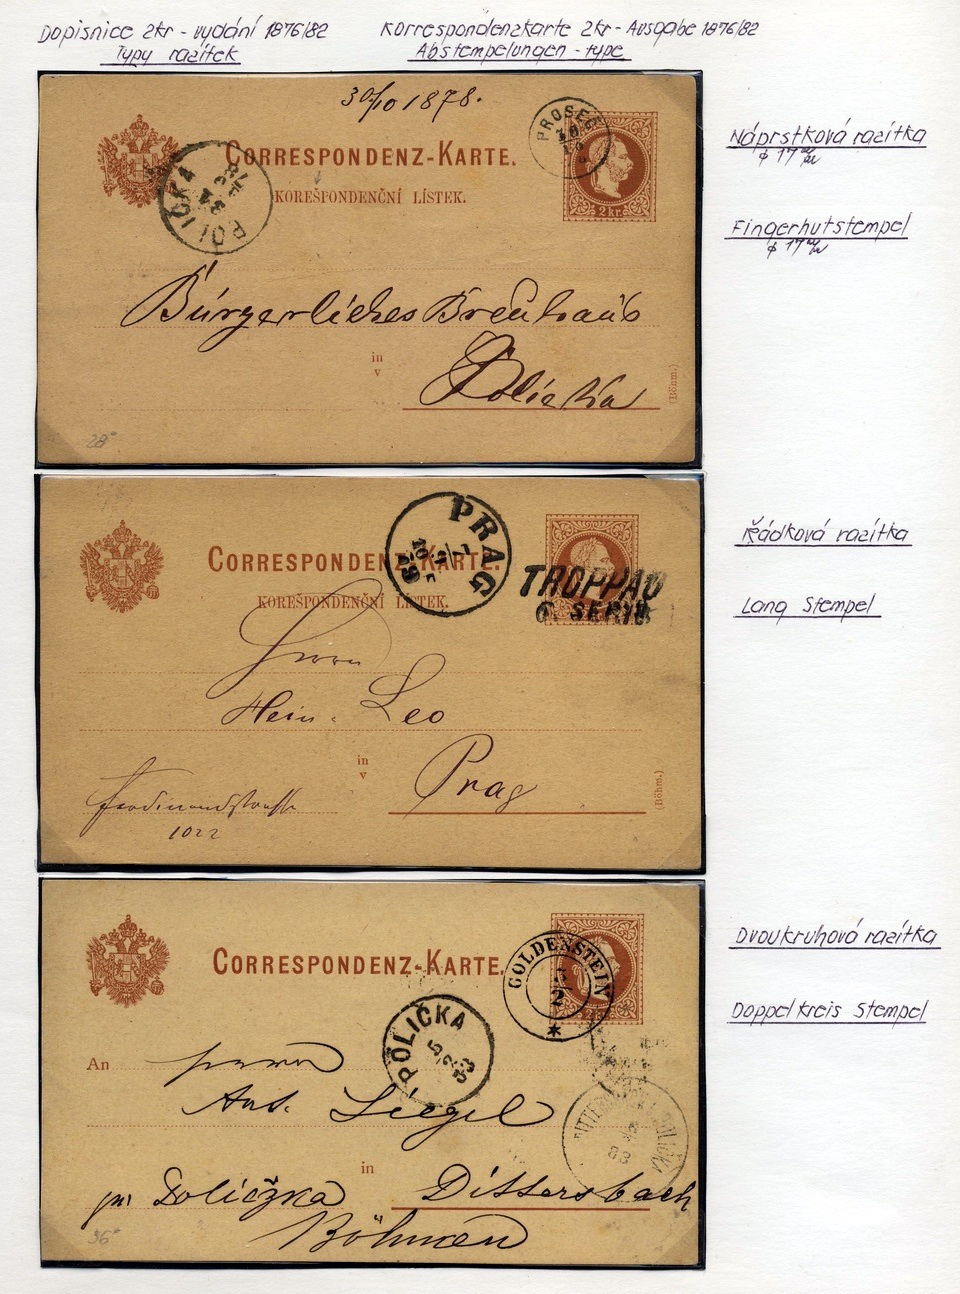 Dopisnice 2kr - vydání 1876/82
Typy razítek
Korrespondenzkarte 2kr - Ausgabe 1876/82
Abstempelungen - type
30/10 1878.
PROSEČ
CORRESPONDENZ-KARTE.
KOREŠPONDENČNÍ LÍSTEK.
2 kr.
POLIČKA
31
78
Bürgerliches Breuhaus
in
v
Polička
(Böhm.)
28°
Náprstková razítka
φ 17 m/m
Fingerhutstempel
φ 17 m/m
CORRESPONDENZ-KARTE.
KOREŠPONDENČNÍ LÍSTEK.
PRAG
79
TROPPAU
6. SERIE
Herrn
Hein. Leo
in
v
Prag
Ferdinandstraße
1022
(Böhm.)
Řádková razítka
Lang Stempel
CORRESPONDENZ-KARTE.
GOLDENSTEIN
3/2
POLIČKA
5/2
83
An
Herrn
Ant. Siegel
in
Dittersbach
pr. Poličzka
Böhmen
83
96°
Dvoukruhová razítka
Doppelkreis Stempel